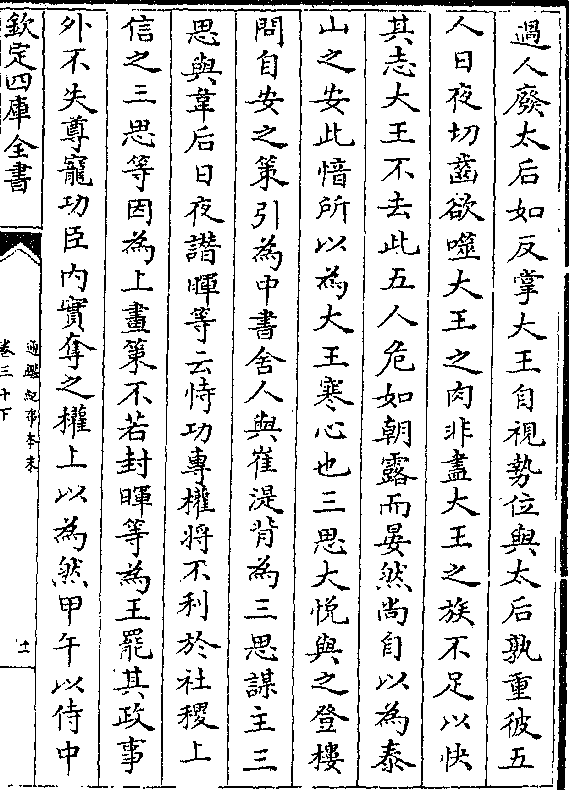 過人廢太后如反掌大王自視勢位與太后孰重彼五
人日夜切齒欲噬大王之肉非盡大王之族不足以快
其志大王不去此五人危如朝露而晏然尚自以為泰
山之安此愔所以為大王寒心也三思大悅與之登樓
問自安之策引為中書舍人與崔湜背為三思謀主三
思與韋后日夜譖暉等云恃功專權將不利於社稷上
信之三思等因為上畫策不若封暉等為王罷其政事
外不失尊寵功臣内實奪之權上以為然甲午以侍中
欽定四庫全書
通鑑紀事本末
卷三十下
十一